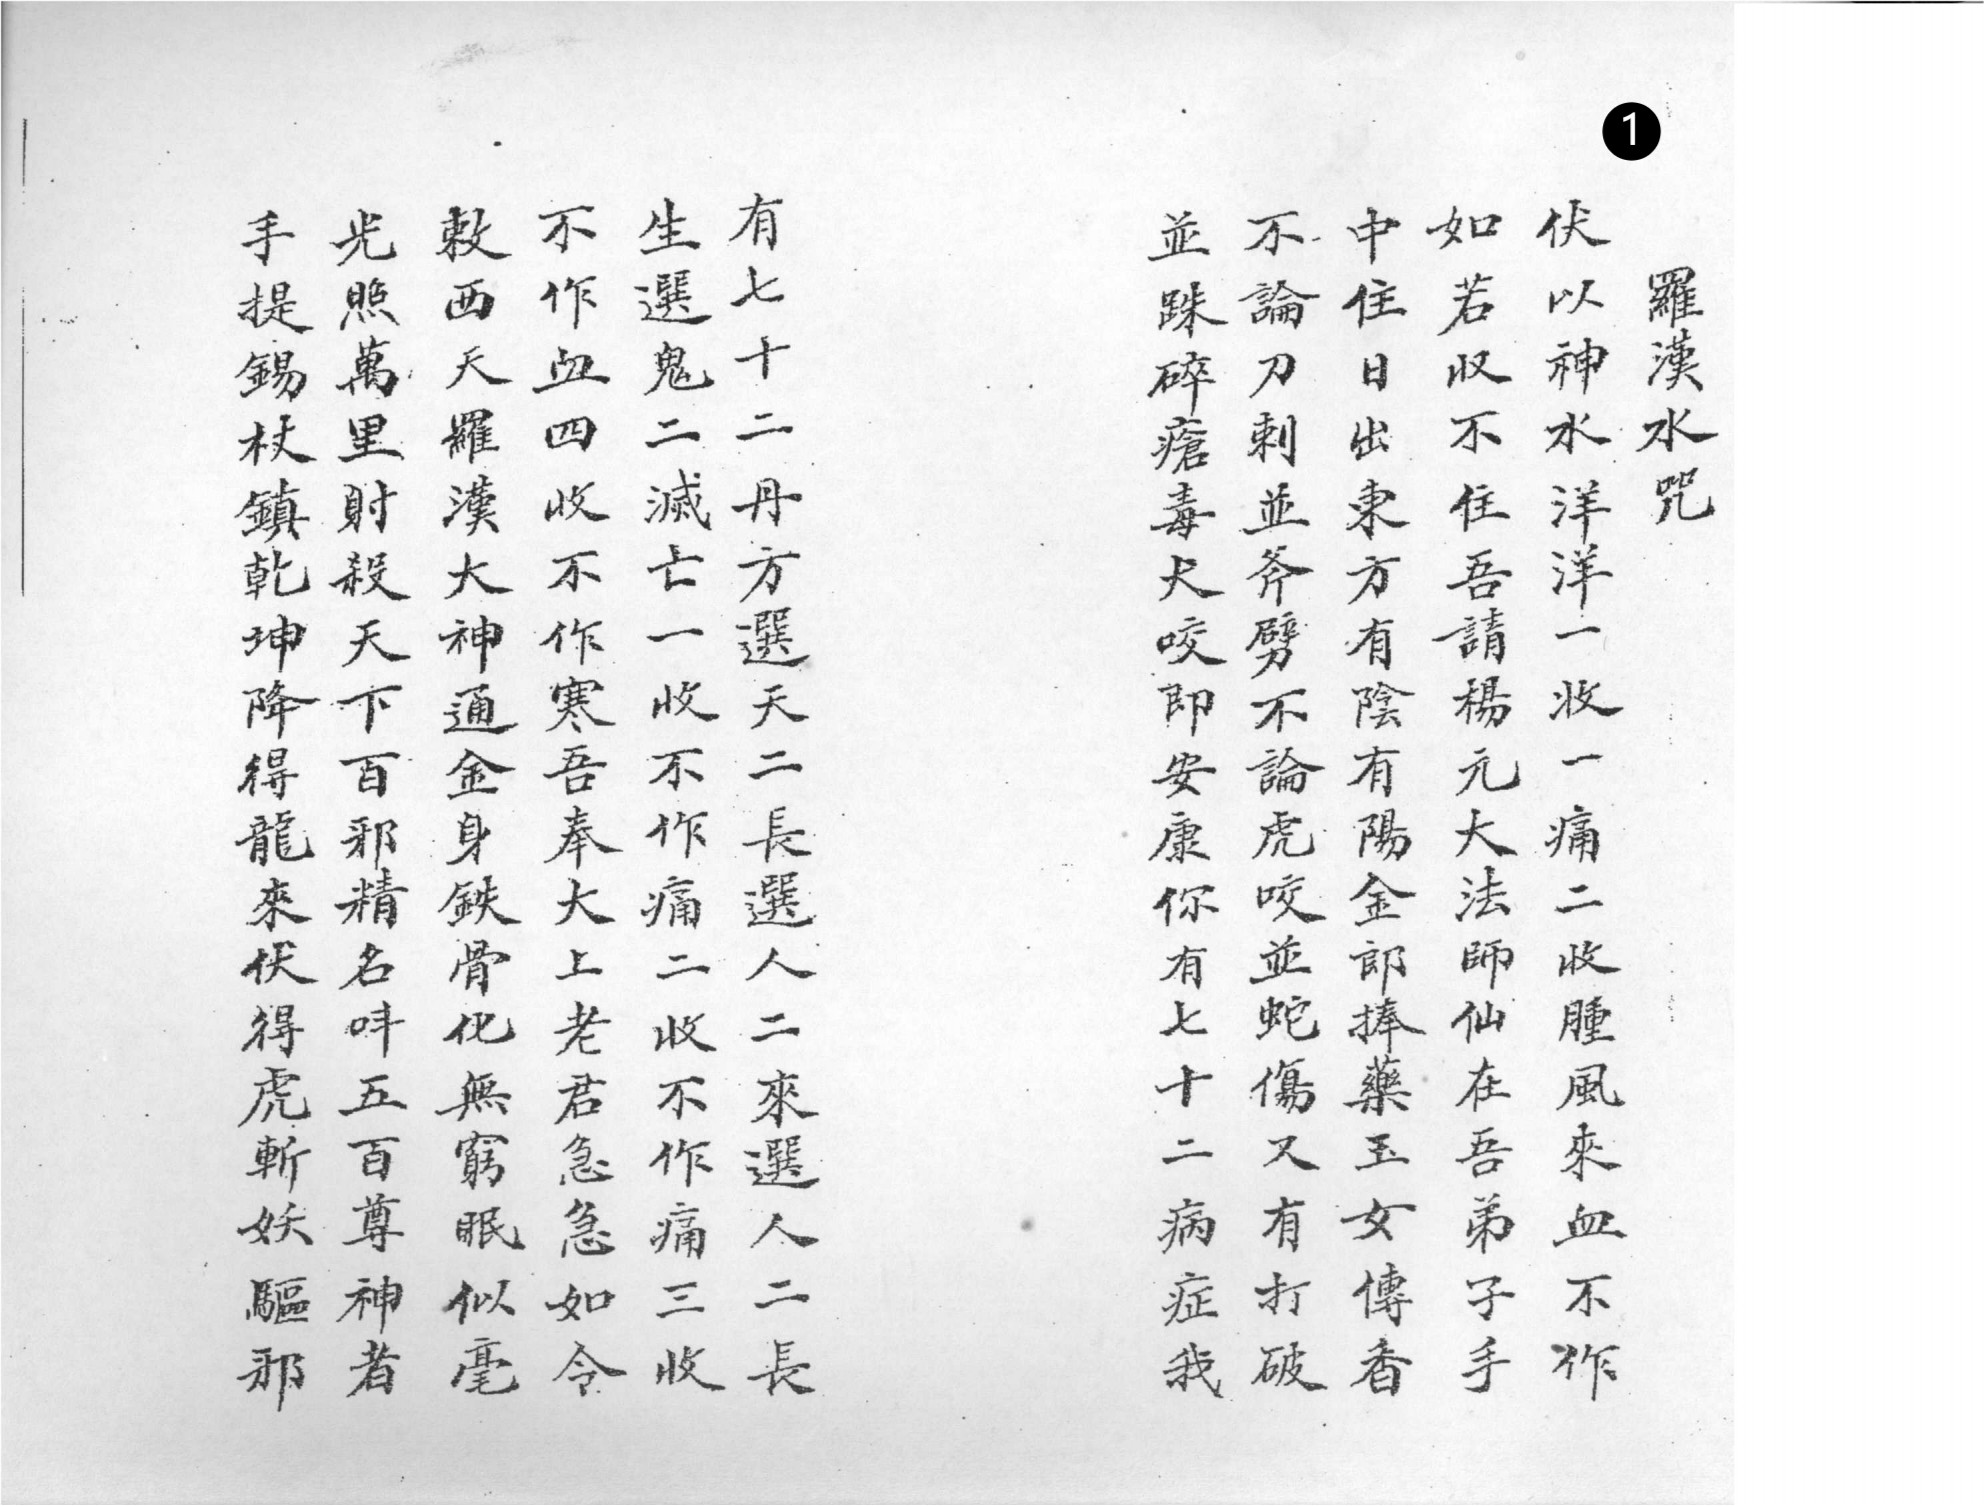 1
羅漢水咒
伏以神水洋洋一收一痛二收腫風來血不作
如若収不住吾請楊元大法師仙在吾弟子手
中住日出東方有陰有陽金郎捧藥玉女傳香
不論刀刺並斧劈不論虎咬並蛇傷又有打破
並跦碎瘡毒犬咬即安康你有七十二病症我
有七十二丹方選天二長選人二來選人二長
生選鬼二滅亡一收不作痛二收不作痛三收
不作血四收不作寒吾奉大上老君急急如令
敕西天羅漢大神通金身鉄骨化無窮眠似毫
光照萬里射殺天下百邪精名呌五百尊神者
手提錫杖鎮乾坤降得龍來伏得虎斬妖驅邪